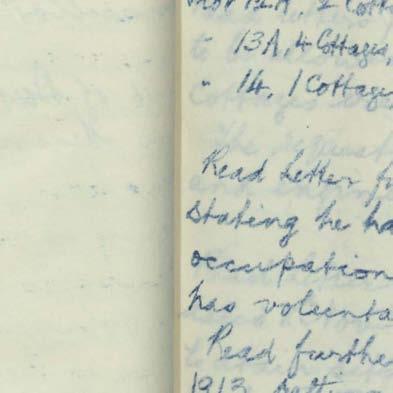 12A, 2 Cott
" 13A, 4 Cottages,
" 14, 1 Cottage
Read letter f
stating he ha
occupation
has volunta
Read furthe
1913